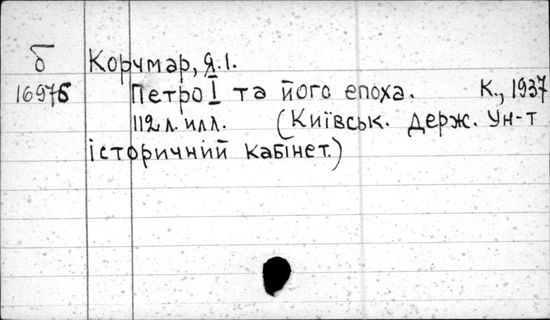 б Корчмар, Я.І.
16975 Петро І та його епоха. К., 1937
112 л. илл. (Київськ. держ. Ун-т
історичний кабінет.)